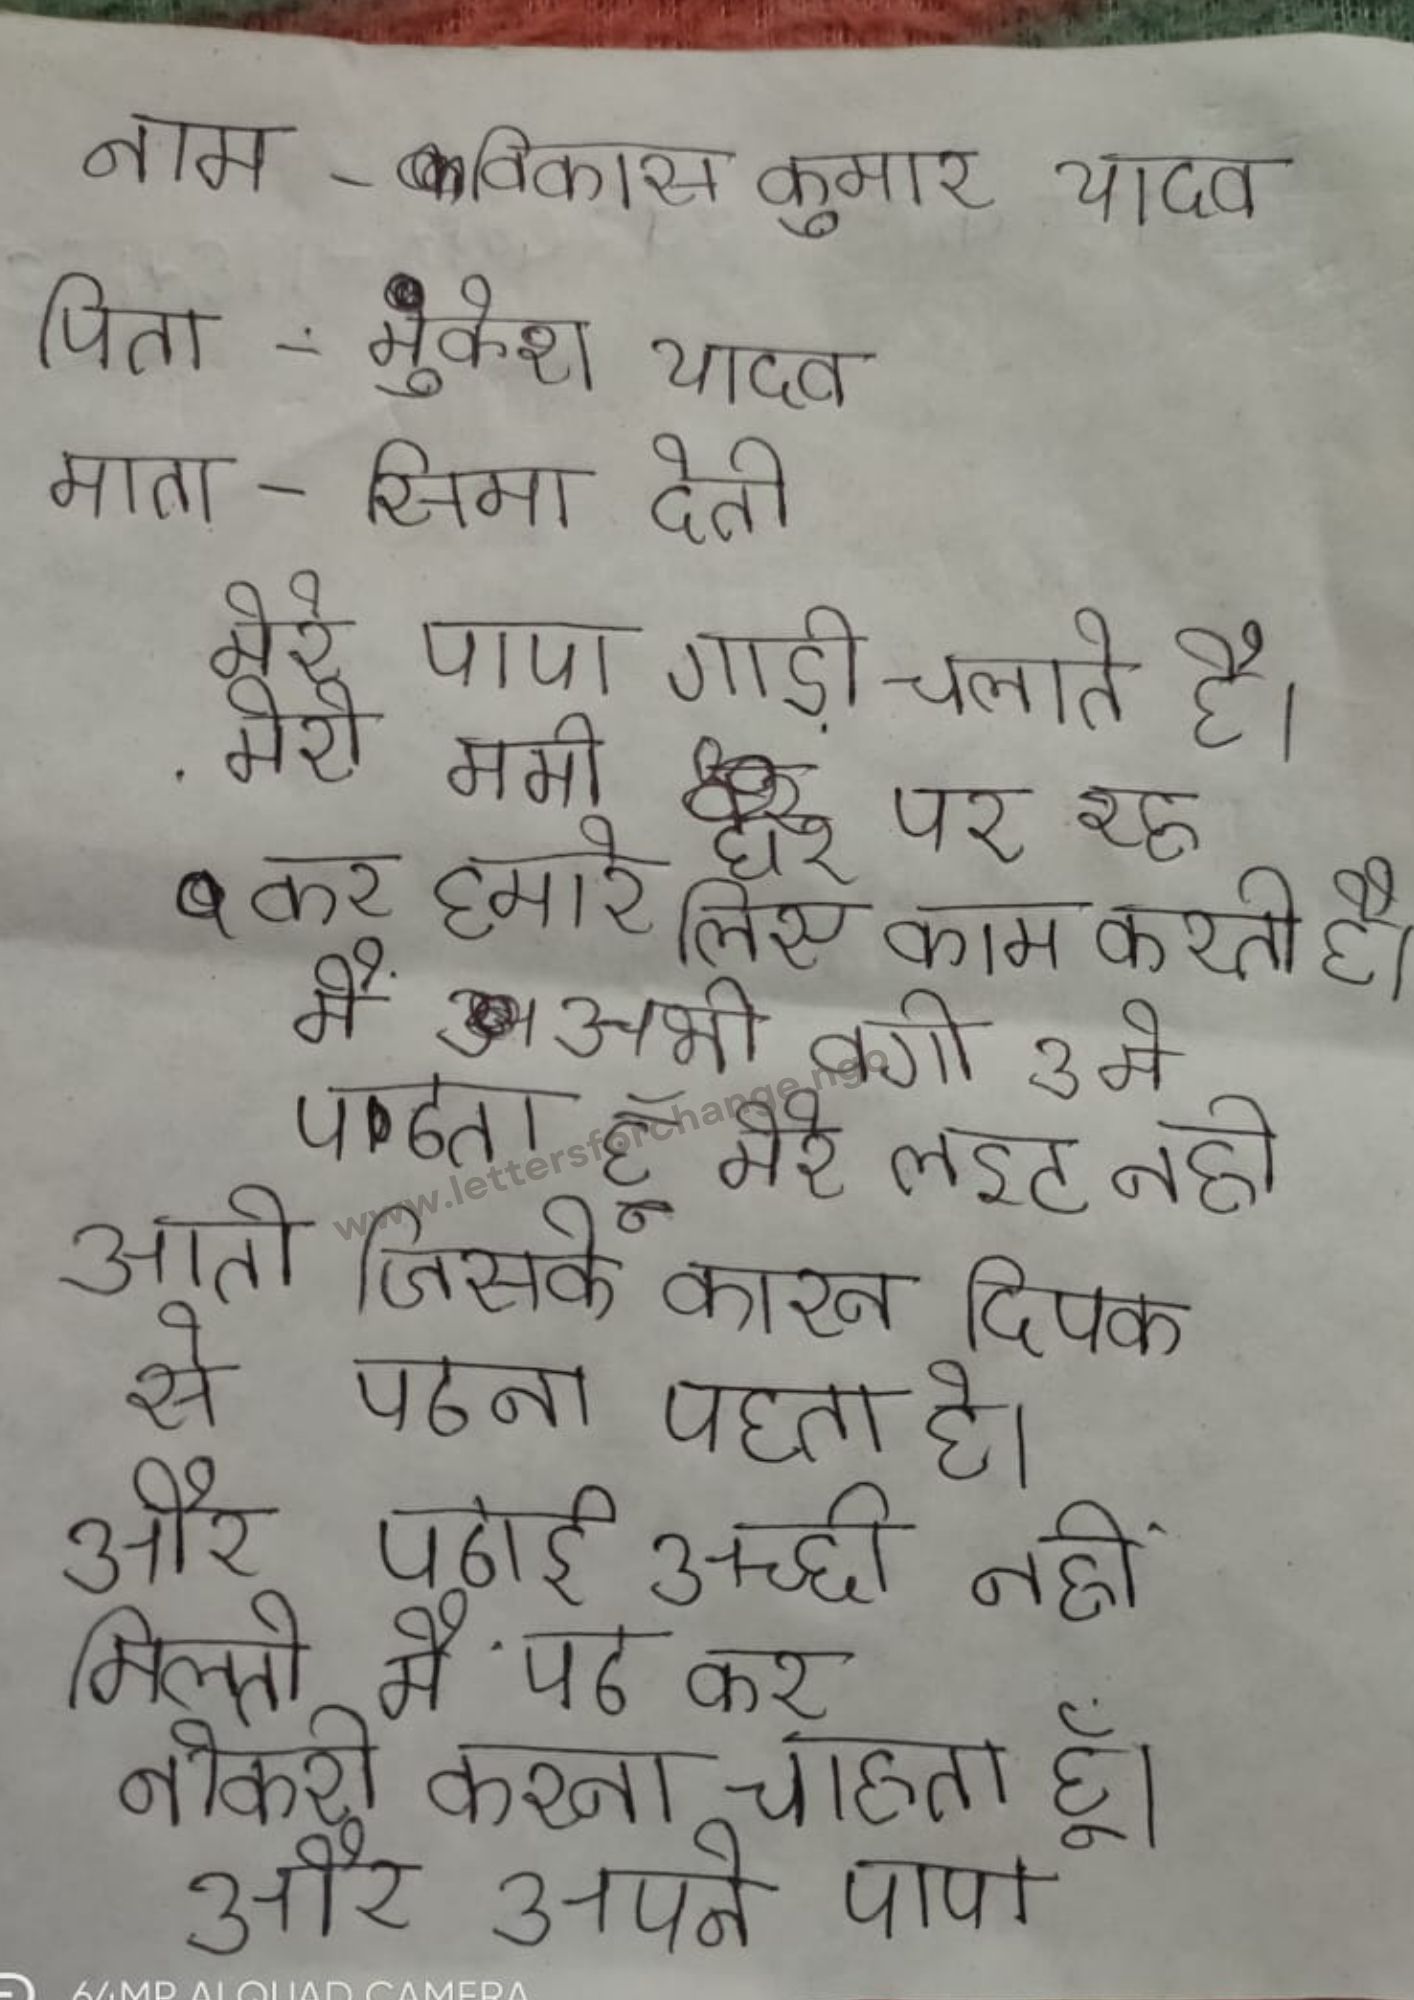 नाम - विकास कुमार यादव
पिता - मुकेश यादव
माता - सिमा देती
मेरे पापा गाड़ी चलाते है।
मेरी ममी घर पर रह
कर हमारे लिए काम करती है।
मैं अभी वर्गा 3 मे
पढता हूँ मेरे लइट नही
आती जिसके कारन दिपक
से पढना पडता हे।
और पढाई अच्छी नहीं
मिलती मैं पढ कर
नौकरी करना चाहता हूँ।
और अपने पापा
www.lettersforchange.ngo
64MP AI QUAD CAMERA